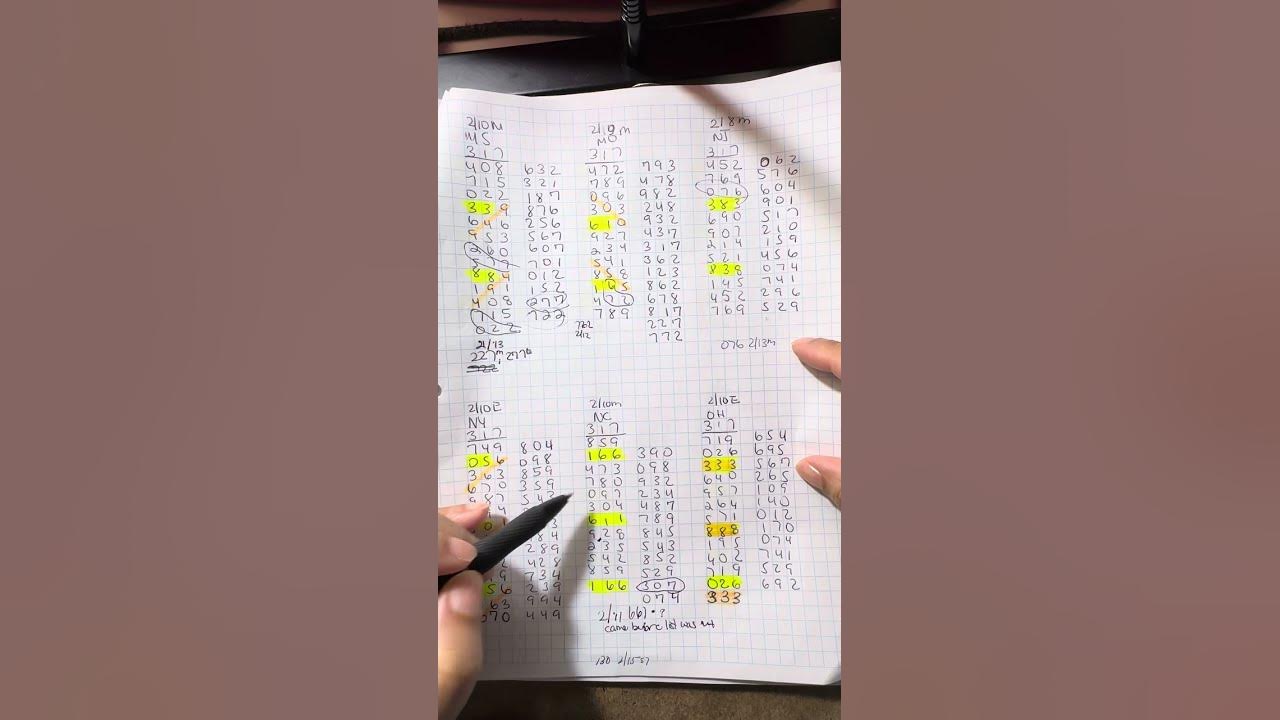 2/10M
MS
317
408 632
715 321
022 187
339 876
646 256
953 567
260 607
701
884 012
191 152
408 277
715 722
022
227
2/10 m
MO
317
472 793
789 478
096 982
303 248
610 932
927 437
234 317
541 362
858 123
165 862
472 678
789 817
227
772
2/12
2/8m
NJ
317
452 062
769 576
076 604
383 901
690 517
907 210
214 159
521 456
838 074
145 741
452 296
769 529
076 2/13m
2/10E
NY
317
749 804
056 098
363 859
670 359
987
289
428
734
56 239
63 994
070 449
2/10m
NC
317
859
166 390
473 098
780 932
097 234
304 487
611 789
928 845
235 543
542 852
859 529
166 307
074
came before list was
130
2/10E
OH
317
719 654
026 695
333 567
640 265
957 109
264 140
571 012
888 170
195 074
402 741
719 529
026 692
333